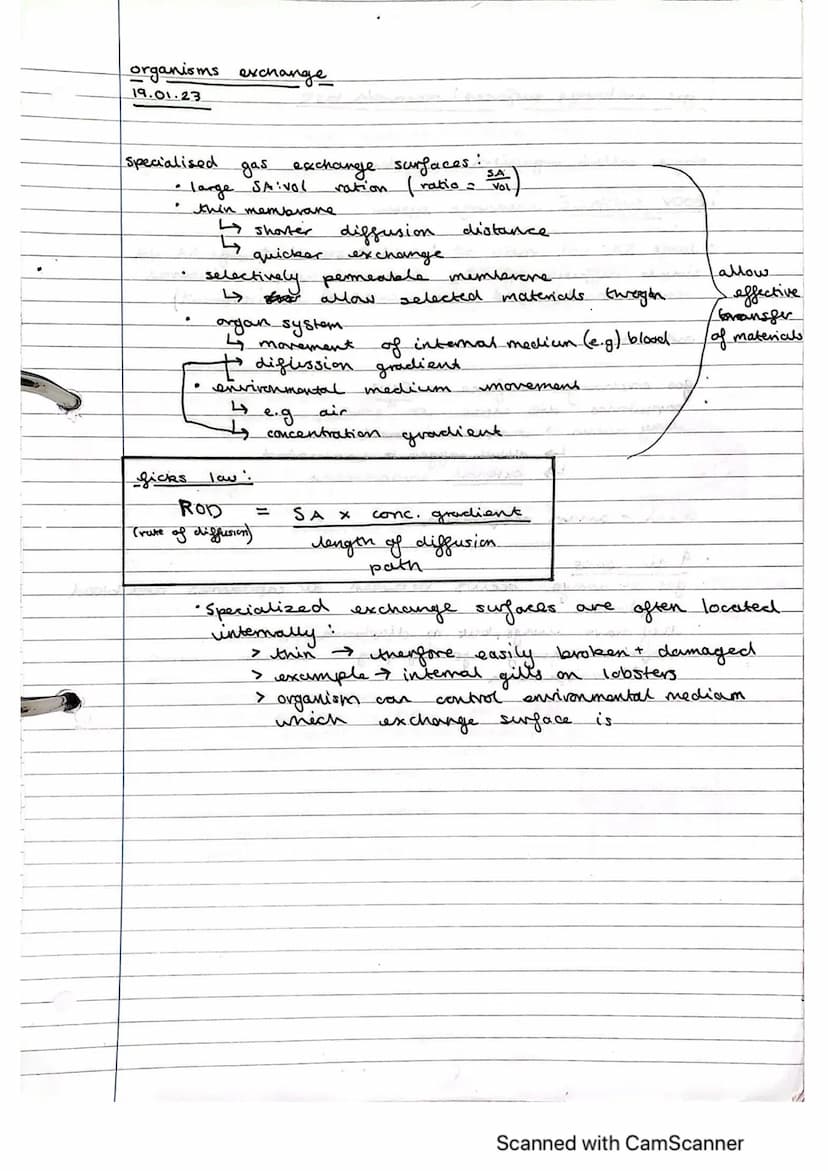 organisms exchange
19.01.23
specialised gas exchange surfaces:
• large SA:vol ration (ratio = SA/VOL)
• thin membrane
↳ shorter diffusion distance
↳ quicker exchange
• selectively permeable membrane
↳ allow selected materials through
• organ system
↳ movement of internal medium (e.g) blood
↳ difussion gradient
• environmental medium movement
↳ e.g air
↳ concentration gradient
allow
effective
transfer
of materials
ficks law:
ROD = SA x conc. gradient
(rate of diffusion) length of diffusion
path
• Specialized exchange surfaces are often located
internally:
> thin → therfore easily broken + damaged
> example → internal gills on lobsters
> organism can control environmental medium
which exchange surface is
Scanned with CamScanner